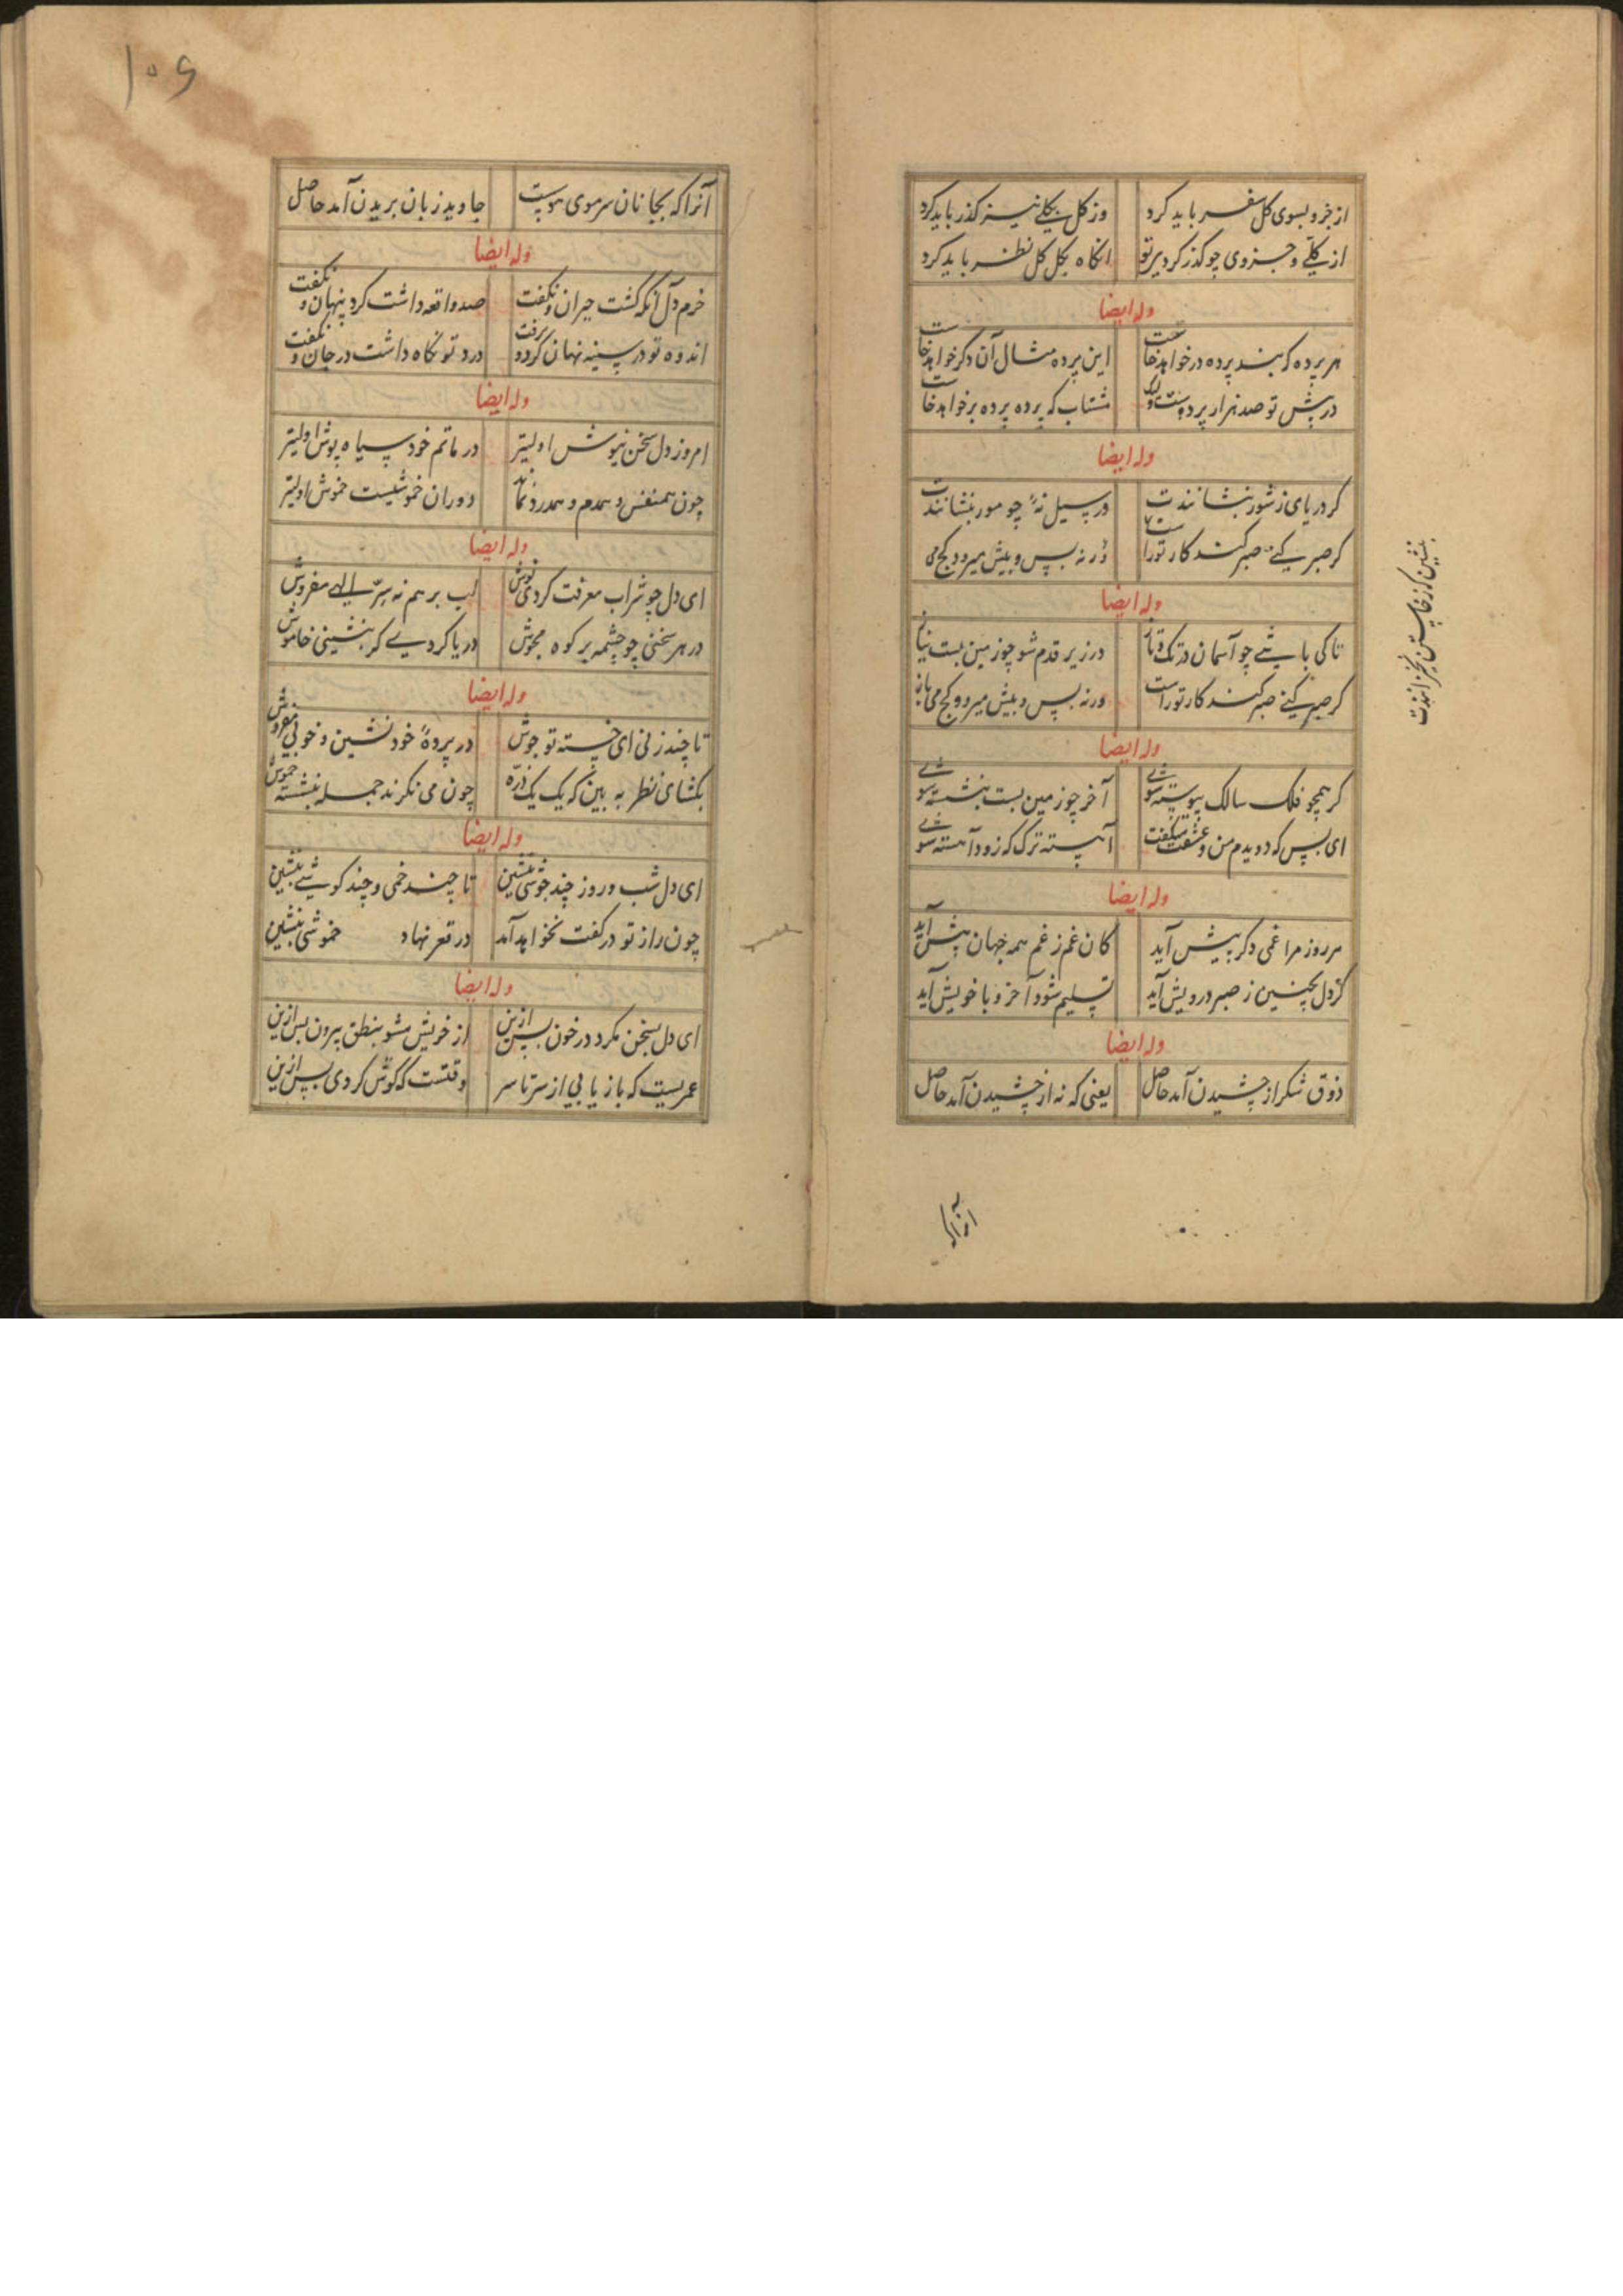 از جزو بسوی کل سفر باید کرد وز کل بکلی نیز گذر باید کرد
از کلی و جزوی چو گذر کردی تو انگاه بکل کل نظر باید کرد
وله ایضا
هر پرده که بند پرده در خواهد خاست این پرده مثال آن دگر خواهد خاست
در پیش تو صد هزار پرده‌ست ولیک مشتاب که پرده پرده بر خواهد خاست
وله ایضا
گر دریای ز شور بنشانندت در سیل نهٔ چو مور بنشانندت
گر صبر کنی صبر کند کار تو راست ورنه پس و پیش میرو و کج می
بنشین که ز خاستن
وله ایضا
تا کی باشی چو آسمان در تک و تاز در زیر قدم شو چو زمین پست نیاز
گر صبر کنی صبر کند کار تو راست ورنه پس و پیش میرو و کج می باز
وله ایضا
گر همچو فلک سالک پیوسته شوی آخر چو زمین پست بنشسته شوی
ای بس که دویدم من و عشقت میگفت آهسته ترک که زود آهسته شوی
وله ایضا
هر روز مرا غمی دگر پیش آید کان غم ز غم همه جهان بیش آید
گر دل بچنین ز صبر درویش آید تسلیم شود آخر و با خویش آید
وله ایضا
ذوق شکر از چشیدن آمد حاصل یعنی که نه از چشیدن آمد حاصل
آنرا که
۱۰۶
آنرا که بجانان سر موی پیوست جاوید زبان بریدن آمد حاصل
وله ایضا
خرم دل آنکه گشت حیران و نگفت صد واقعه داشت کرد پنهان و نگفت
اندوه تو در سینه نهان کرد و برفت درد تو نگاه داشت در جان و نگفت
وله ایضا
امروز دل سخن نیوش اولیتر در ماتم خود سیاه پوش اولیتر
چون همنفس و همدم و همدرد نماند دوران خموشیست خموش اولیتر
وله ایضا
ای دل چو شراب معرفت کردی نوش لب بر هم نه سر الهی مفروش
در هر سخنی چو چشمه بر کوه مجوش دریا گردی گر بنشینی خاموش
وله ایضا
تا چند زنی ای خسته تو جوش در پردهٔ خود نشین و خوبی مفروش
بگشای نظر به بین که یک یک ذره چون می نگرند جمله بنشسته خموش
وله ایضا
ای دل شب و روز چند جوشی بنشین تا چند خمی و چند کوشی بنشین
چون راز تو در گفت نخواهد آمد در قعر نهاد خموشی بنشین
وله ایضا
ای دل بسخن مگرد در خون پس ازین از خویش مشو بنطق بیرون پس ازین
عمریست که باز یابی از سر تا سر وقتست که گوش کردی پس ازین